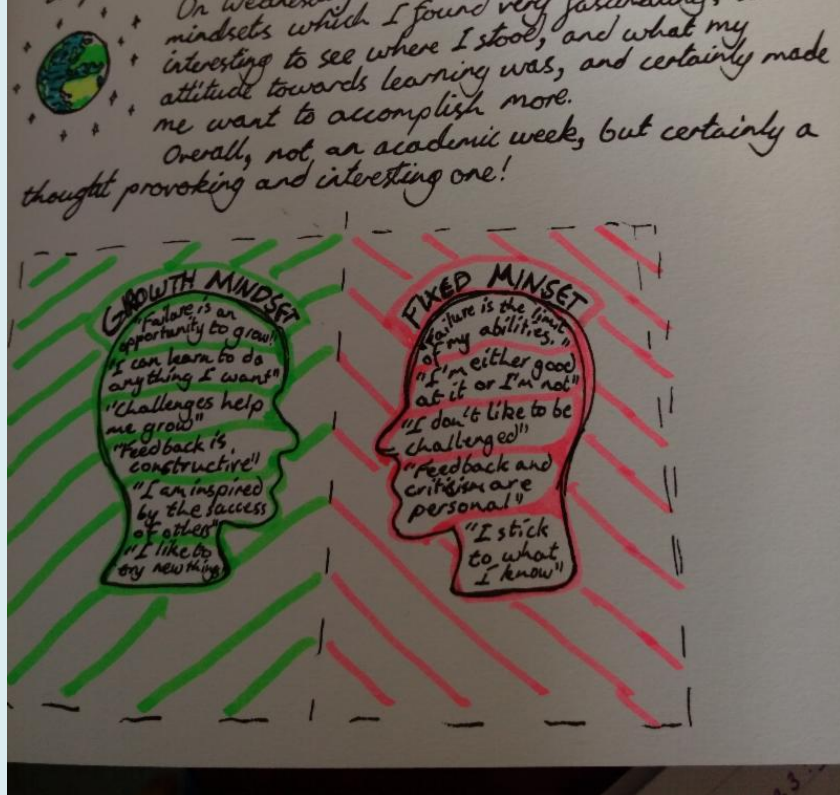 On Wednesday
mindsets which I found very fascinating,
interesting to see where I stood, and what my
attitude towards learning was, and certainly made
me want to accomplish more.
Overall, not an academic week, but certainly a
thought provoking and interesting one!
GROWTH MINDSET
"Failure is an
opportunity to grow!"
"I can learn to do
anything I want"
"Challenges help
me grow"
"Feedback is
constructive"
"I am inspired
by the success
of others"
"I like to
try new things"
FIXED MINSET
"Failure is the limit
of my abilities."
"I'm either good
at it or I'm not"
"I don't like to be
challenged"
"Feedback and
critisism are
personal"
"I stick
to what
I know"